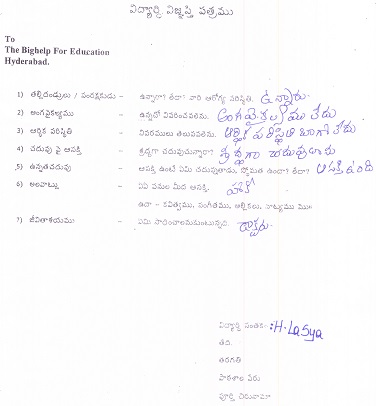 విద్యార్థి విజ్ఞప్తి పత్రము
To
The Bighelp For Education
Hyderabad.
1) తల్లిదండ్రులు / సంరక్షకుడు - ఉన్నారా? లేదా? వారి ఆరోగ్య పరిస్థితి. ఉన్నారు.
2) అంగవైకల్యము - ఉన్నచో వివరించవలెను. అంగవైకల్యము లేదు
3) ఆర్థిక పరిస్థితి - వివరములు తెలుపవలెను. ఆర్థిక పరిస్థితి బాగా లేదు
4) చదువు పై ఆసక్తి - శ్రద్ధగా చదువుచున్నారా? శ్రద్ధగా చదువుతారు
5) ఉన్నతచదువు - ఆసక్తి ఉంటే ఏమి చదువుతాడు, స్తోమత ఉందా? లేదా? ఆసక్తి ఉంది
6) అలవాట్లు - ఏఏ పనుల మీద ఆసక్తి.
ఉదా - కవిత్వము, సంగీతము, అల్లికలు, నాట్యము మొ॥
7) జీవితాశయము - ఏమి సాధించాలనుకుంటున్నది. డాక్టరు.
విద్యార్థి సంతకం :H.Lasya
తేది.
తరగతి
పాఠశాల పేరు
పూర్తి చిరునామా